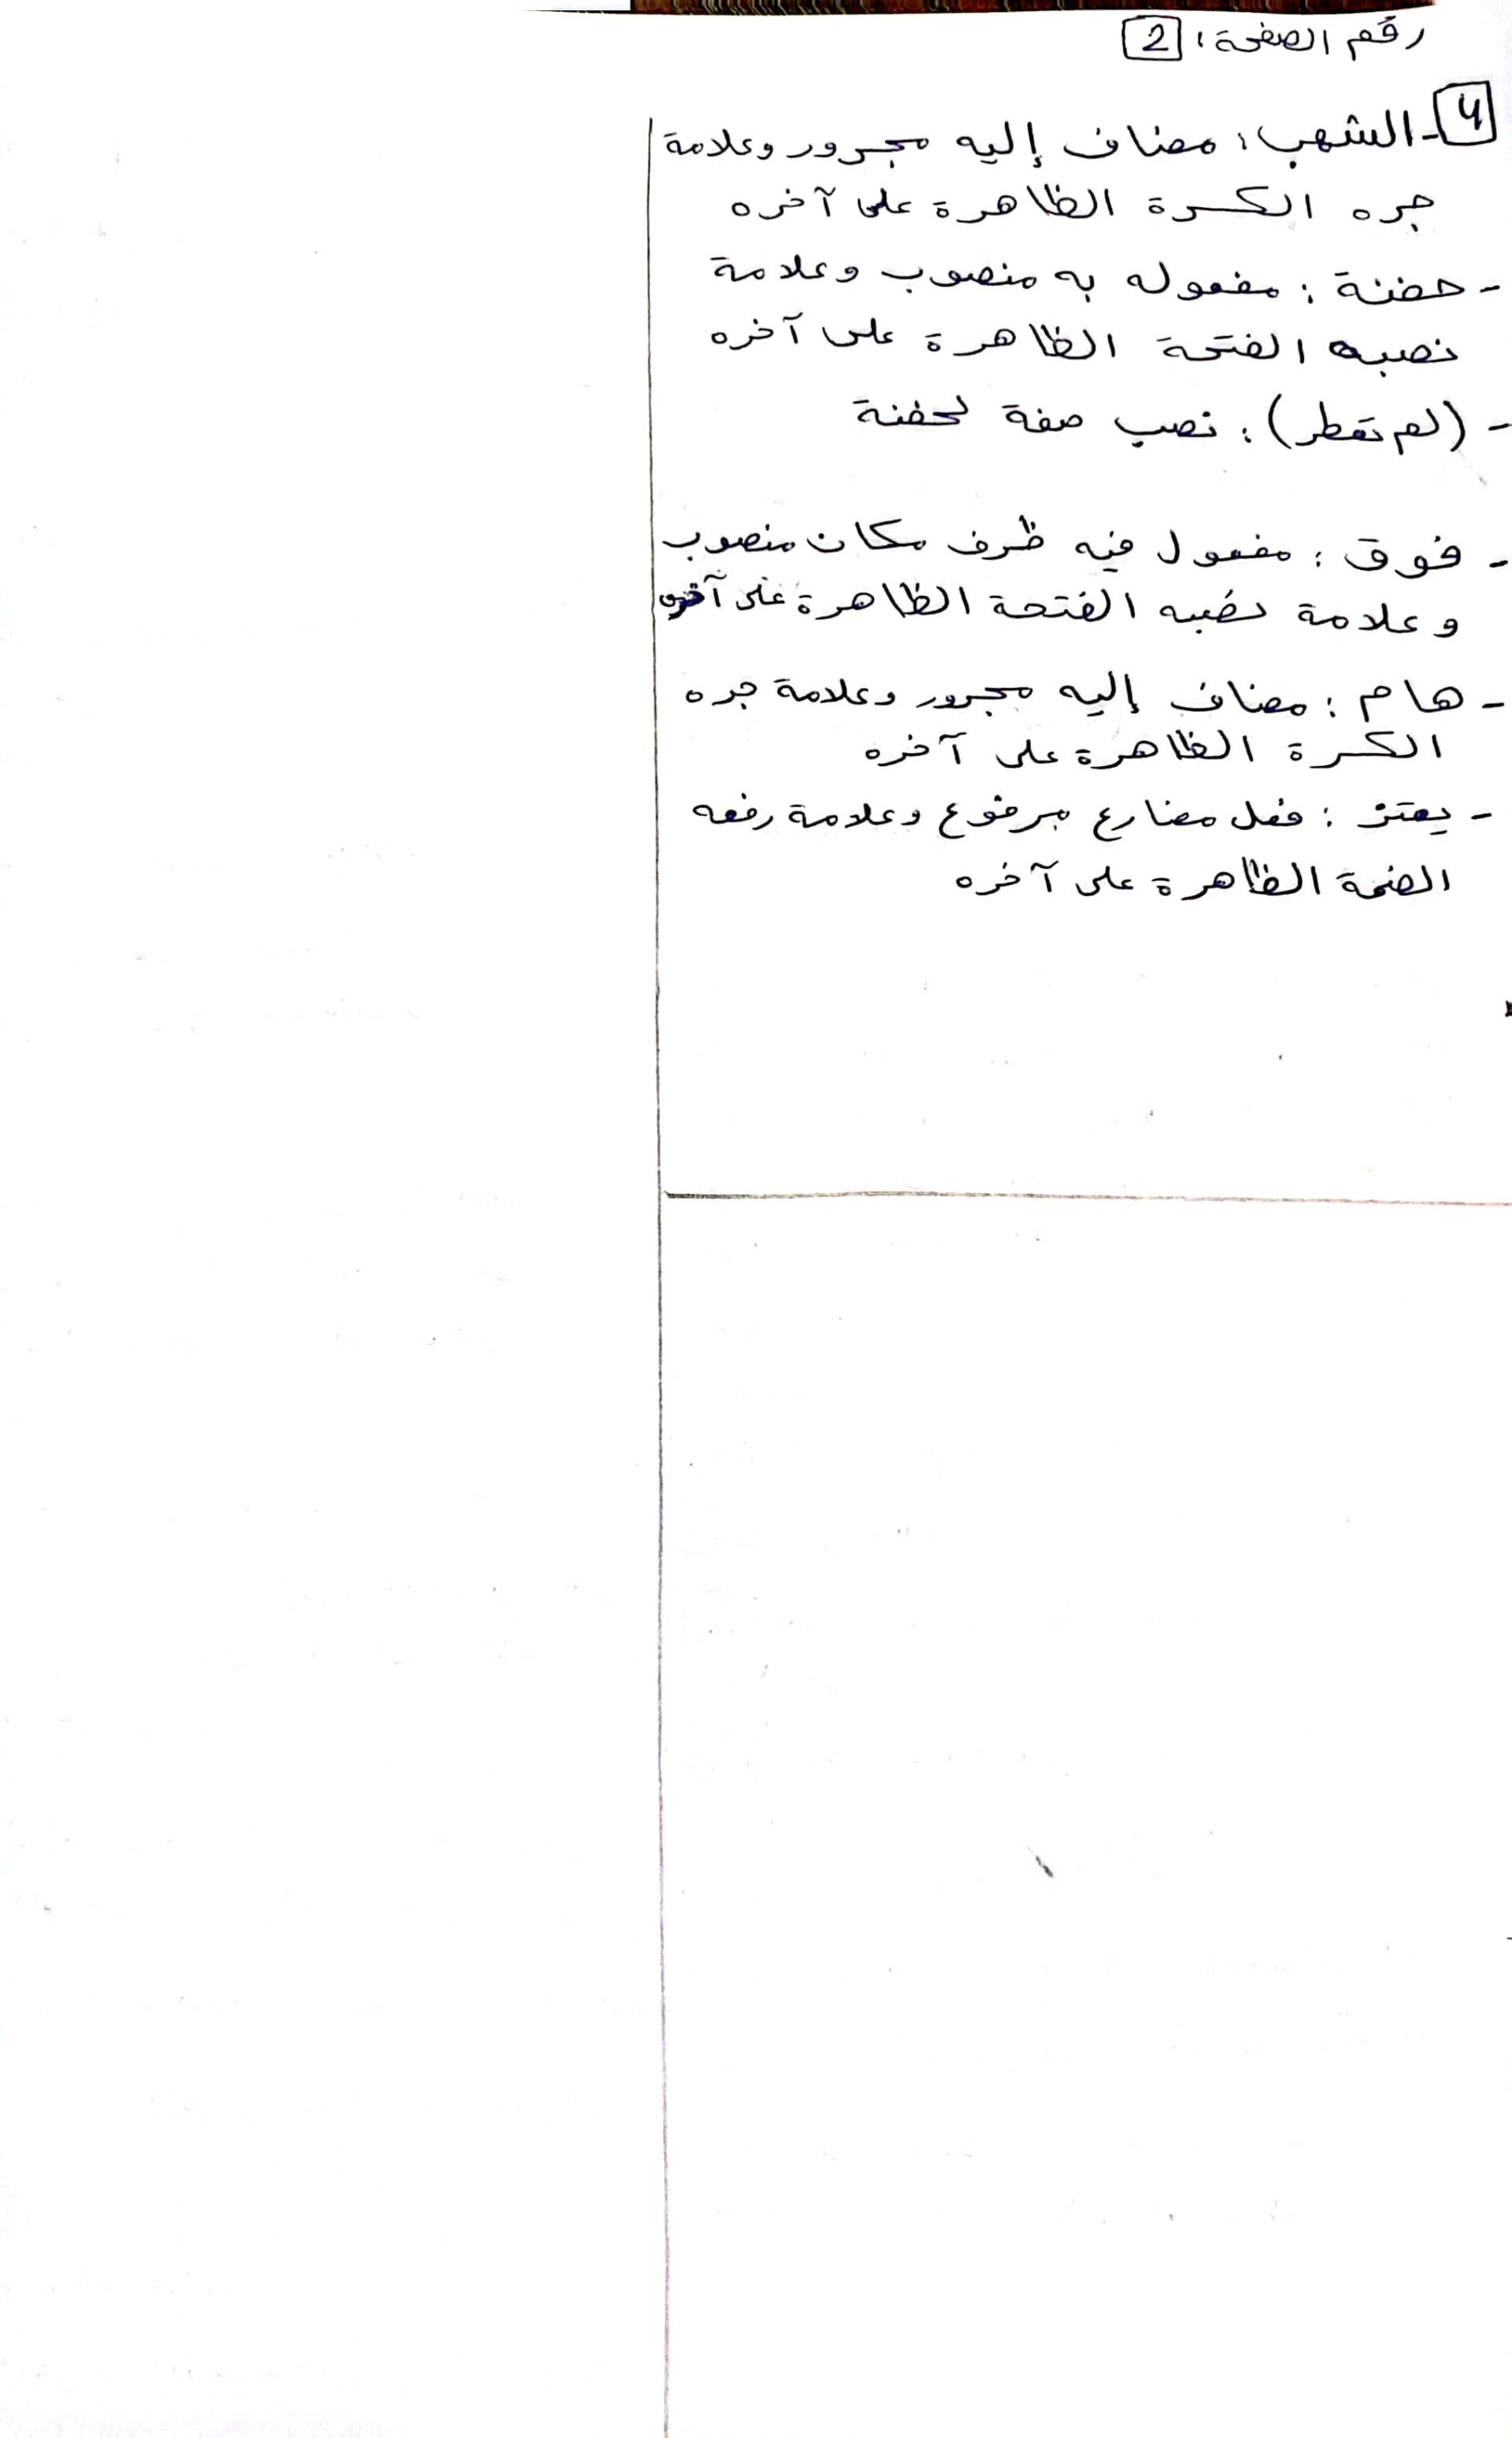 رقم الصفحة: 2
4 - الشهب: مضاف إليه مجرور وعلامة
جره الكسرة الظاهرة على آخره
- حفنة: مفعول به منصوب وعلامة
نصبه الفتحة الظاهرة على آخره
- (لم تقطر): نصب صفة لحفنة
- فوق: مفعول فيه ظرف مكان منصوب
وعلامة نصبه الفتحة الظاهرة على آخره
- هام: مضاف إليه مجرور وعلامة جره
الكسرة الظاهرة على آخره
- يعتز: فعل مضارع مرفوع وعلامة رفعه
الضمة الظاهرة على آخره